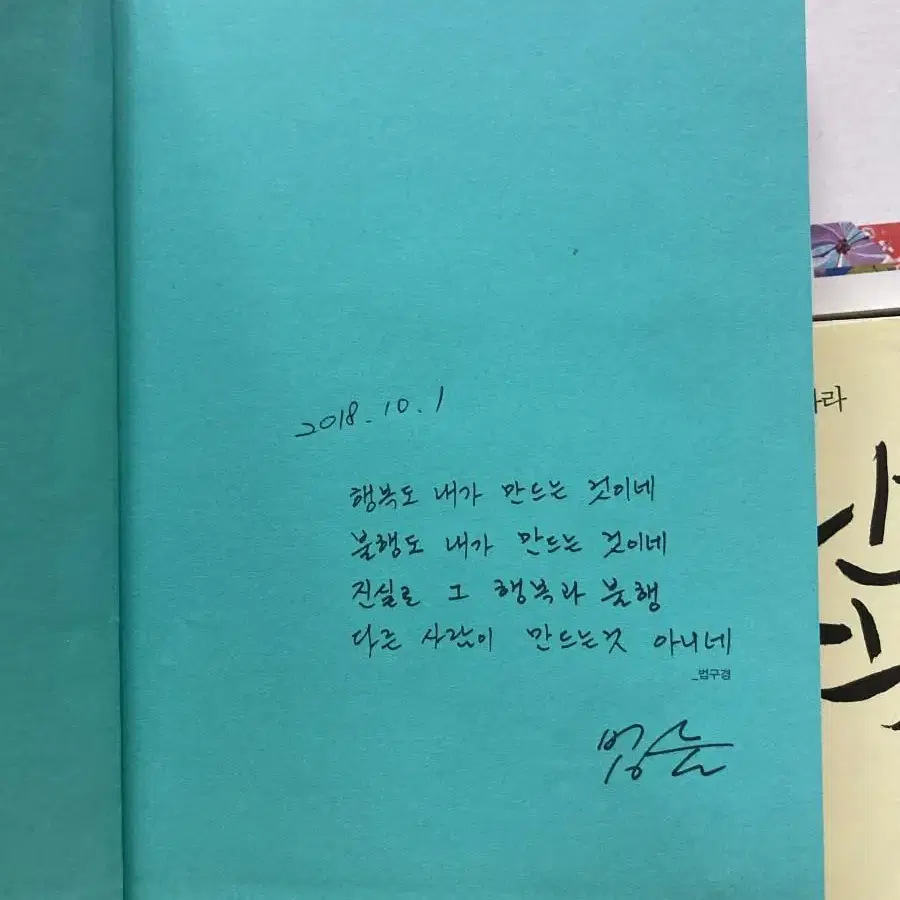 2018.10.1
행복도 내가 만드는 것이네
불행도 내가 만드는 것이네
진실로 그 행복과 불행
다른 사람이 만드는것 아니네
_법구경
법륜
라